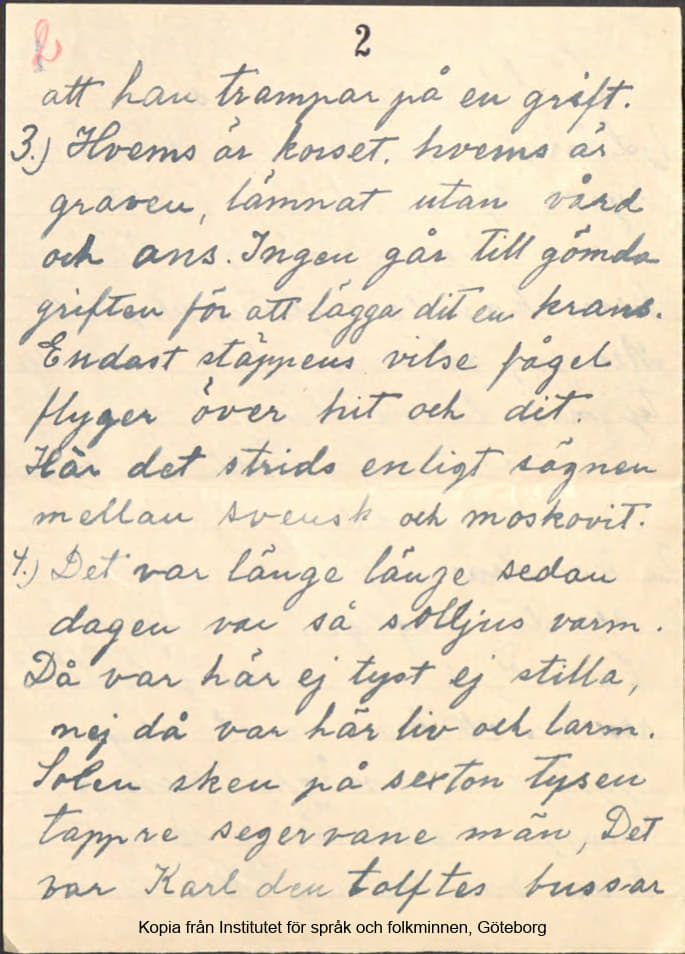 2
2
att han trampar på en grift.
3.) Hvems är korset. hvems är
graven, lämnat utan vård
och ans. Ingen går till gömda
griften för att lägga dit en krans.
Endast stäppens vilse fågel
flyger över hit och dit.
Här det strids enligt sägnen
mellan svensk och moskovit.
4.) Det var länge länge sedan
dagen var så solljus varm.
Då var här ej tyst ej stilla,
nej då var här liv och larm.
Solen sken på sexton tysen
tappre segervane män, Det
var Karl den tolftes bussar
Kopia från Institutet för språk och folkminnen, Göteborg